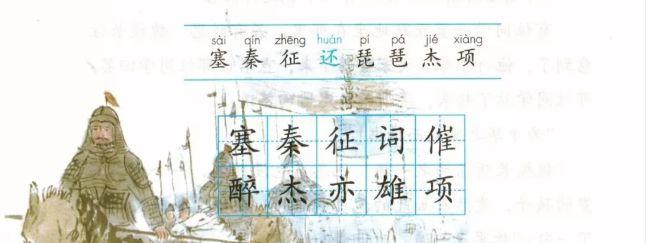 sài qín zhēng huán pí pá jié xiàng
塞 秦 征 还 琵 琶 杰 项
塞 秦 征 词 催
醉 杰 亦 雄 项